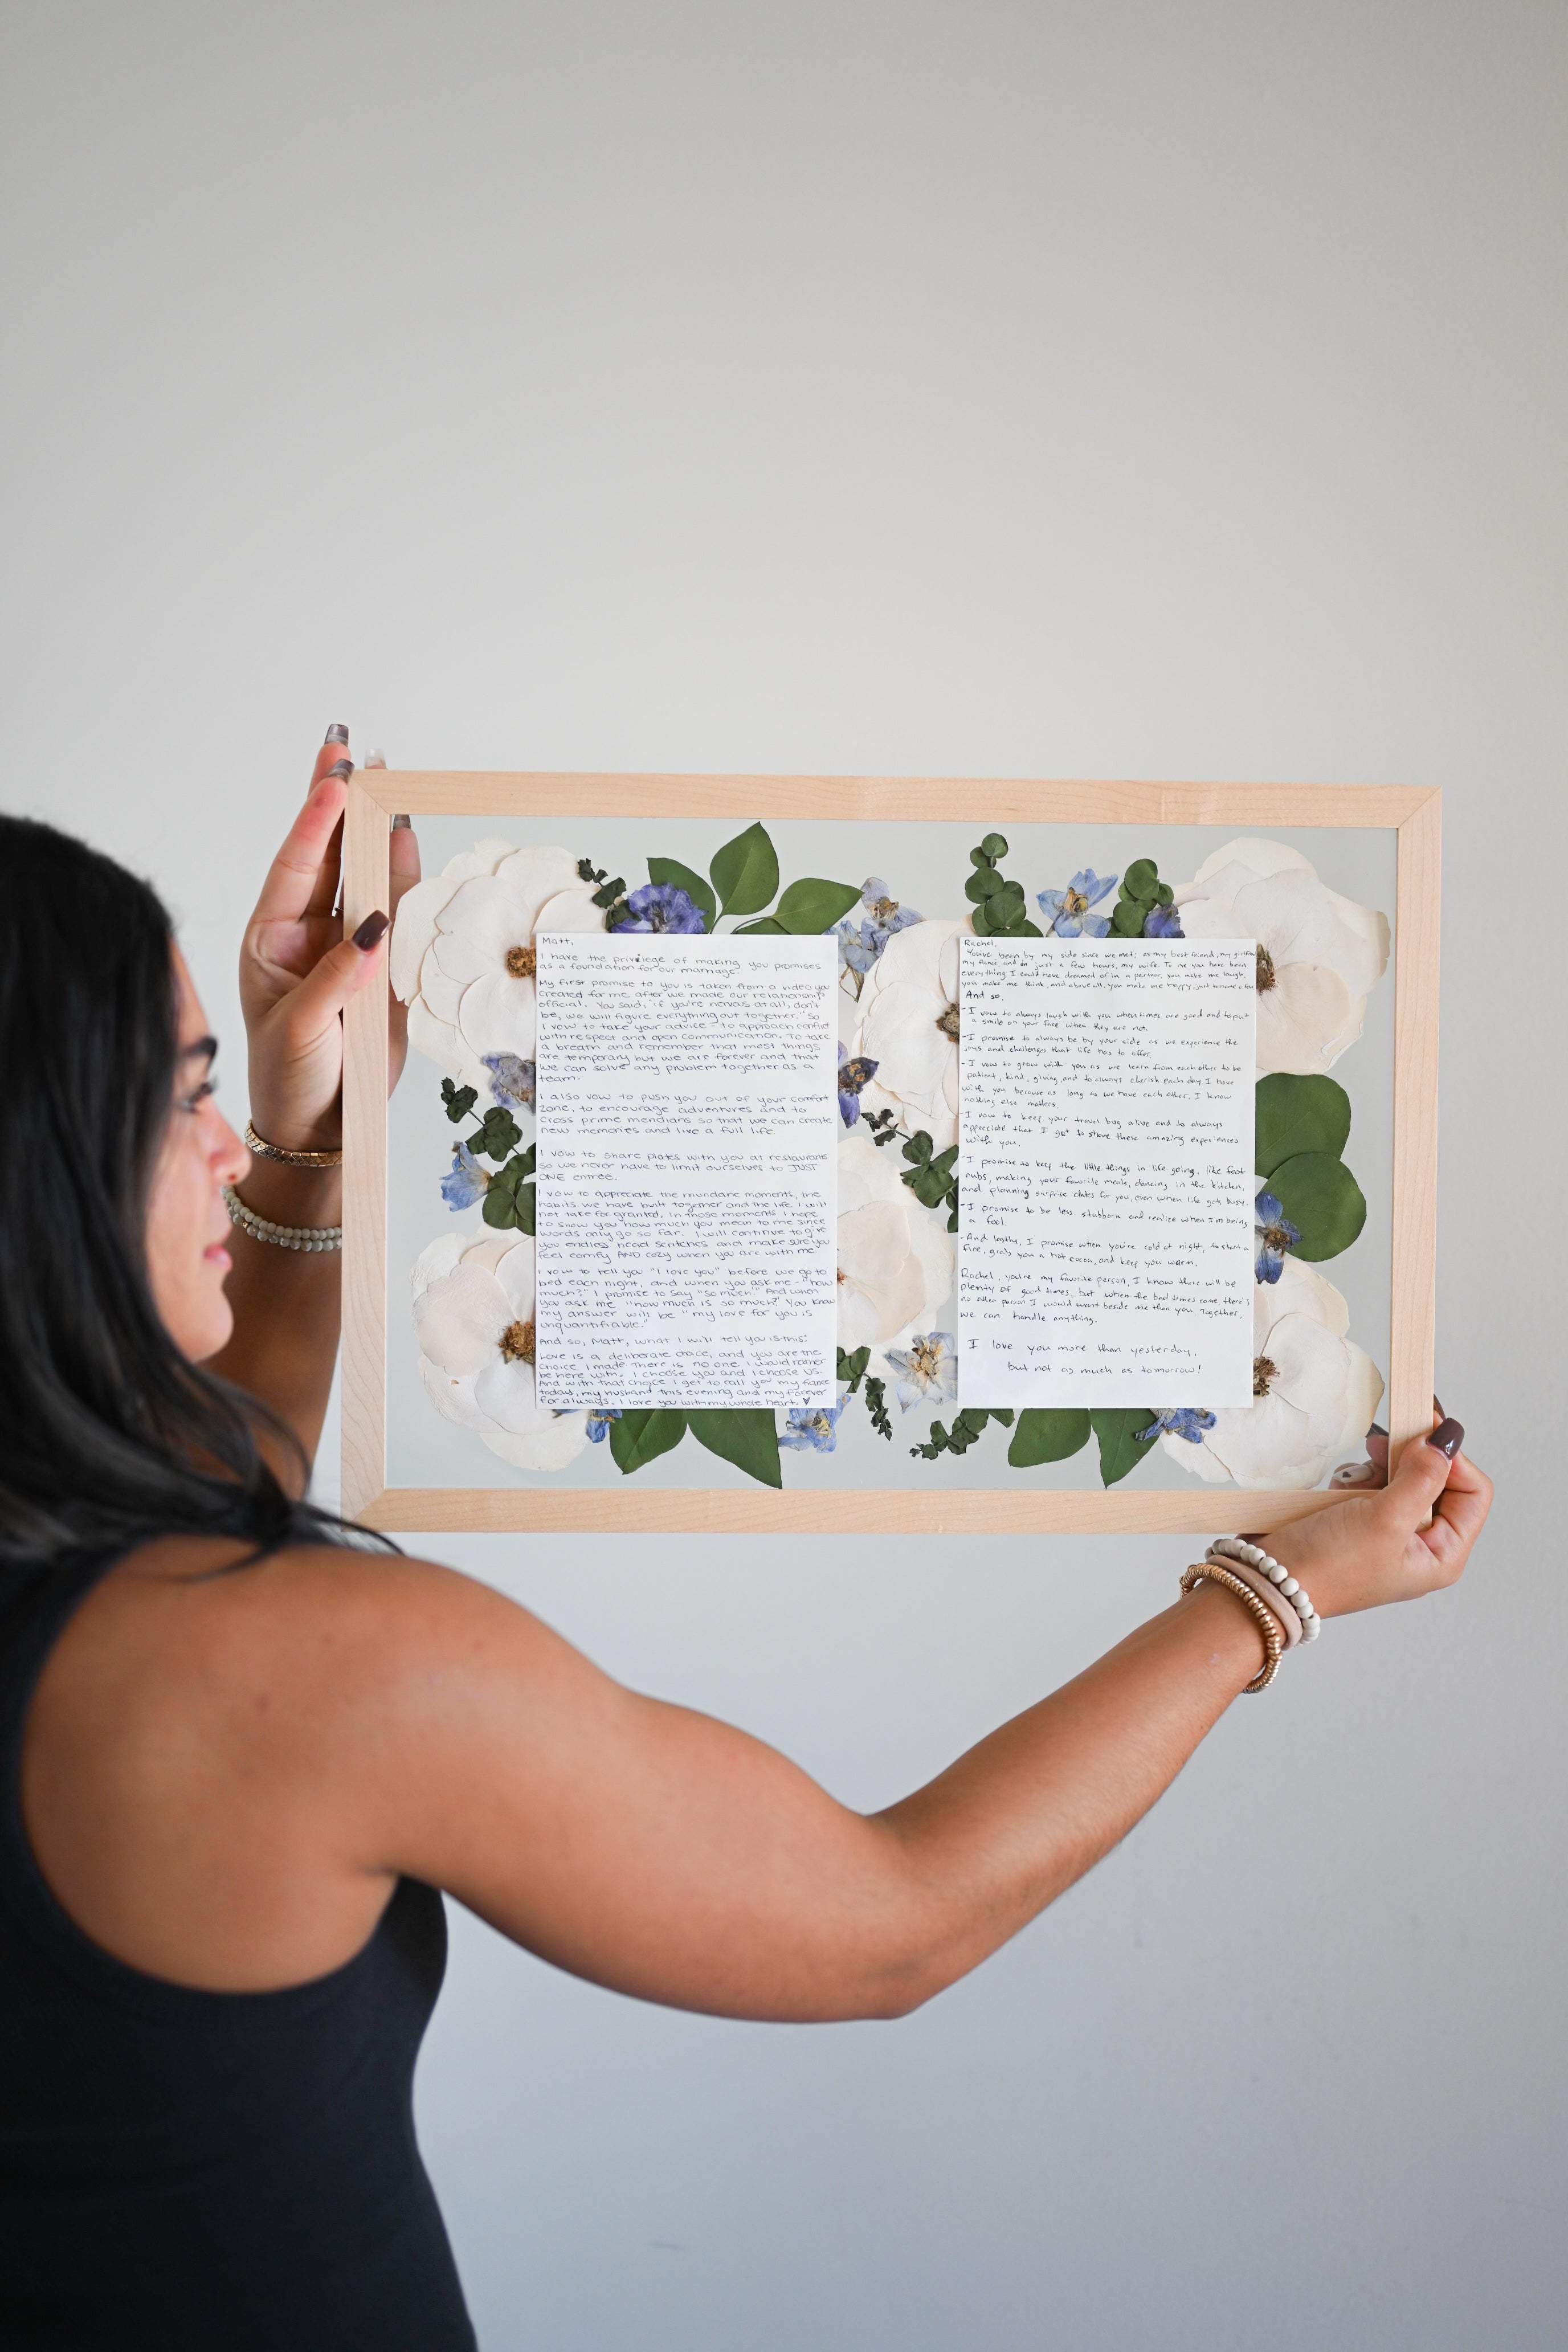 Matt,
I have the privilege of making you promises
as a foundation for our marriage.
My first promise to you is taken from a video you
created for me after we made our relationship
official. You said, "if you're nervous at all, don't
be, we will figure everything out together." So
I vow to take your advice - to approach conflict
with respect and open communication. To take
a breath and remember that most things
are temporary but we are forever and that
we can solve any problem together as a
team.
I also vow to push you out of your comfort
zone, to encourage adventures and to
cross prime meridians so that we can create
new memories and live a full life.
I vow to share plates with you at restaurants
so we never have to limit ourselves to JUST
ONE entree.
I vow to appreciate the mundane moments, the
habits we have built together and the life I will
not take for granted. In those moments I hope
to show you how much you mean to me since
words only go so far. I will continue to give
you endless head scratches and make sure you
feel comfy AND cozy when you are with me
I vow to tell you "I love you" before we go to
bed each night, and when you ask me - "how
much?" I promise to say "so much." And when
you ask me "how much is so much?" You know
my answer will be "my love for you is
unquantifiable."
And so, Matt, what I will tell you is this:
Love is a deliberate choice, and you are the
choice I made. There is no one I would rather
be here with. I choose you and I choose us.
And with that choice I get to call you my fiance
today, my husband this evening and my forever
for always. I love you with my whole heart. ♥
Rachel,
You've been by my side since we met; as my best friend, my girlfriend
my fiance, and in just a few hours, my wife. To me you have been
everything I could have dreamed of in a partner, you make me laugh,
you make me think, and above all, you make me happy, just to name a few
And so,
- I vow to always laugh with you when times are good and to put
a smile on your face when they are not.
- I promise to always be by your side as we experience the
joys and challenges that life has to offer.
- I vow to grow with you as we learn from each other to be
patient, kind, giving, and to always cherish each day I have
with you because as long as we have each other, I know
nothing else matters.
- I vow to keep your travel bug alive and to always
appreciate that I get to share these amazing experiences
with you.
- I promise to keep the little things in life going, like foot
rubs, making your favorite meals, dancing in the kitchen,
and planning surprise dates for you, even when life gets busy.
- I promise to be less stubborn and realize when I'm being
a fool.
- And lastly, I promise when you're cold at night, to start a
fire, grab you a hot cocoa, and keep you warm.
Rachel, you're my favorite person, I know there will be
plenty of good times, but when the bad times come there's
no other person I would want beside me than you. Together,
we can handle anything.
I love you more than yesterday,
but not as much as tomorrow!